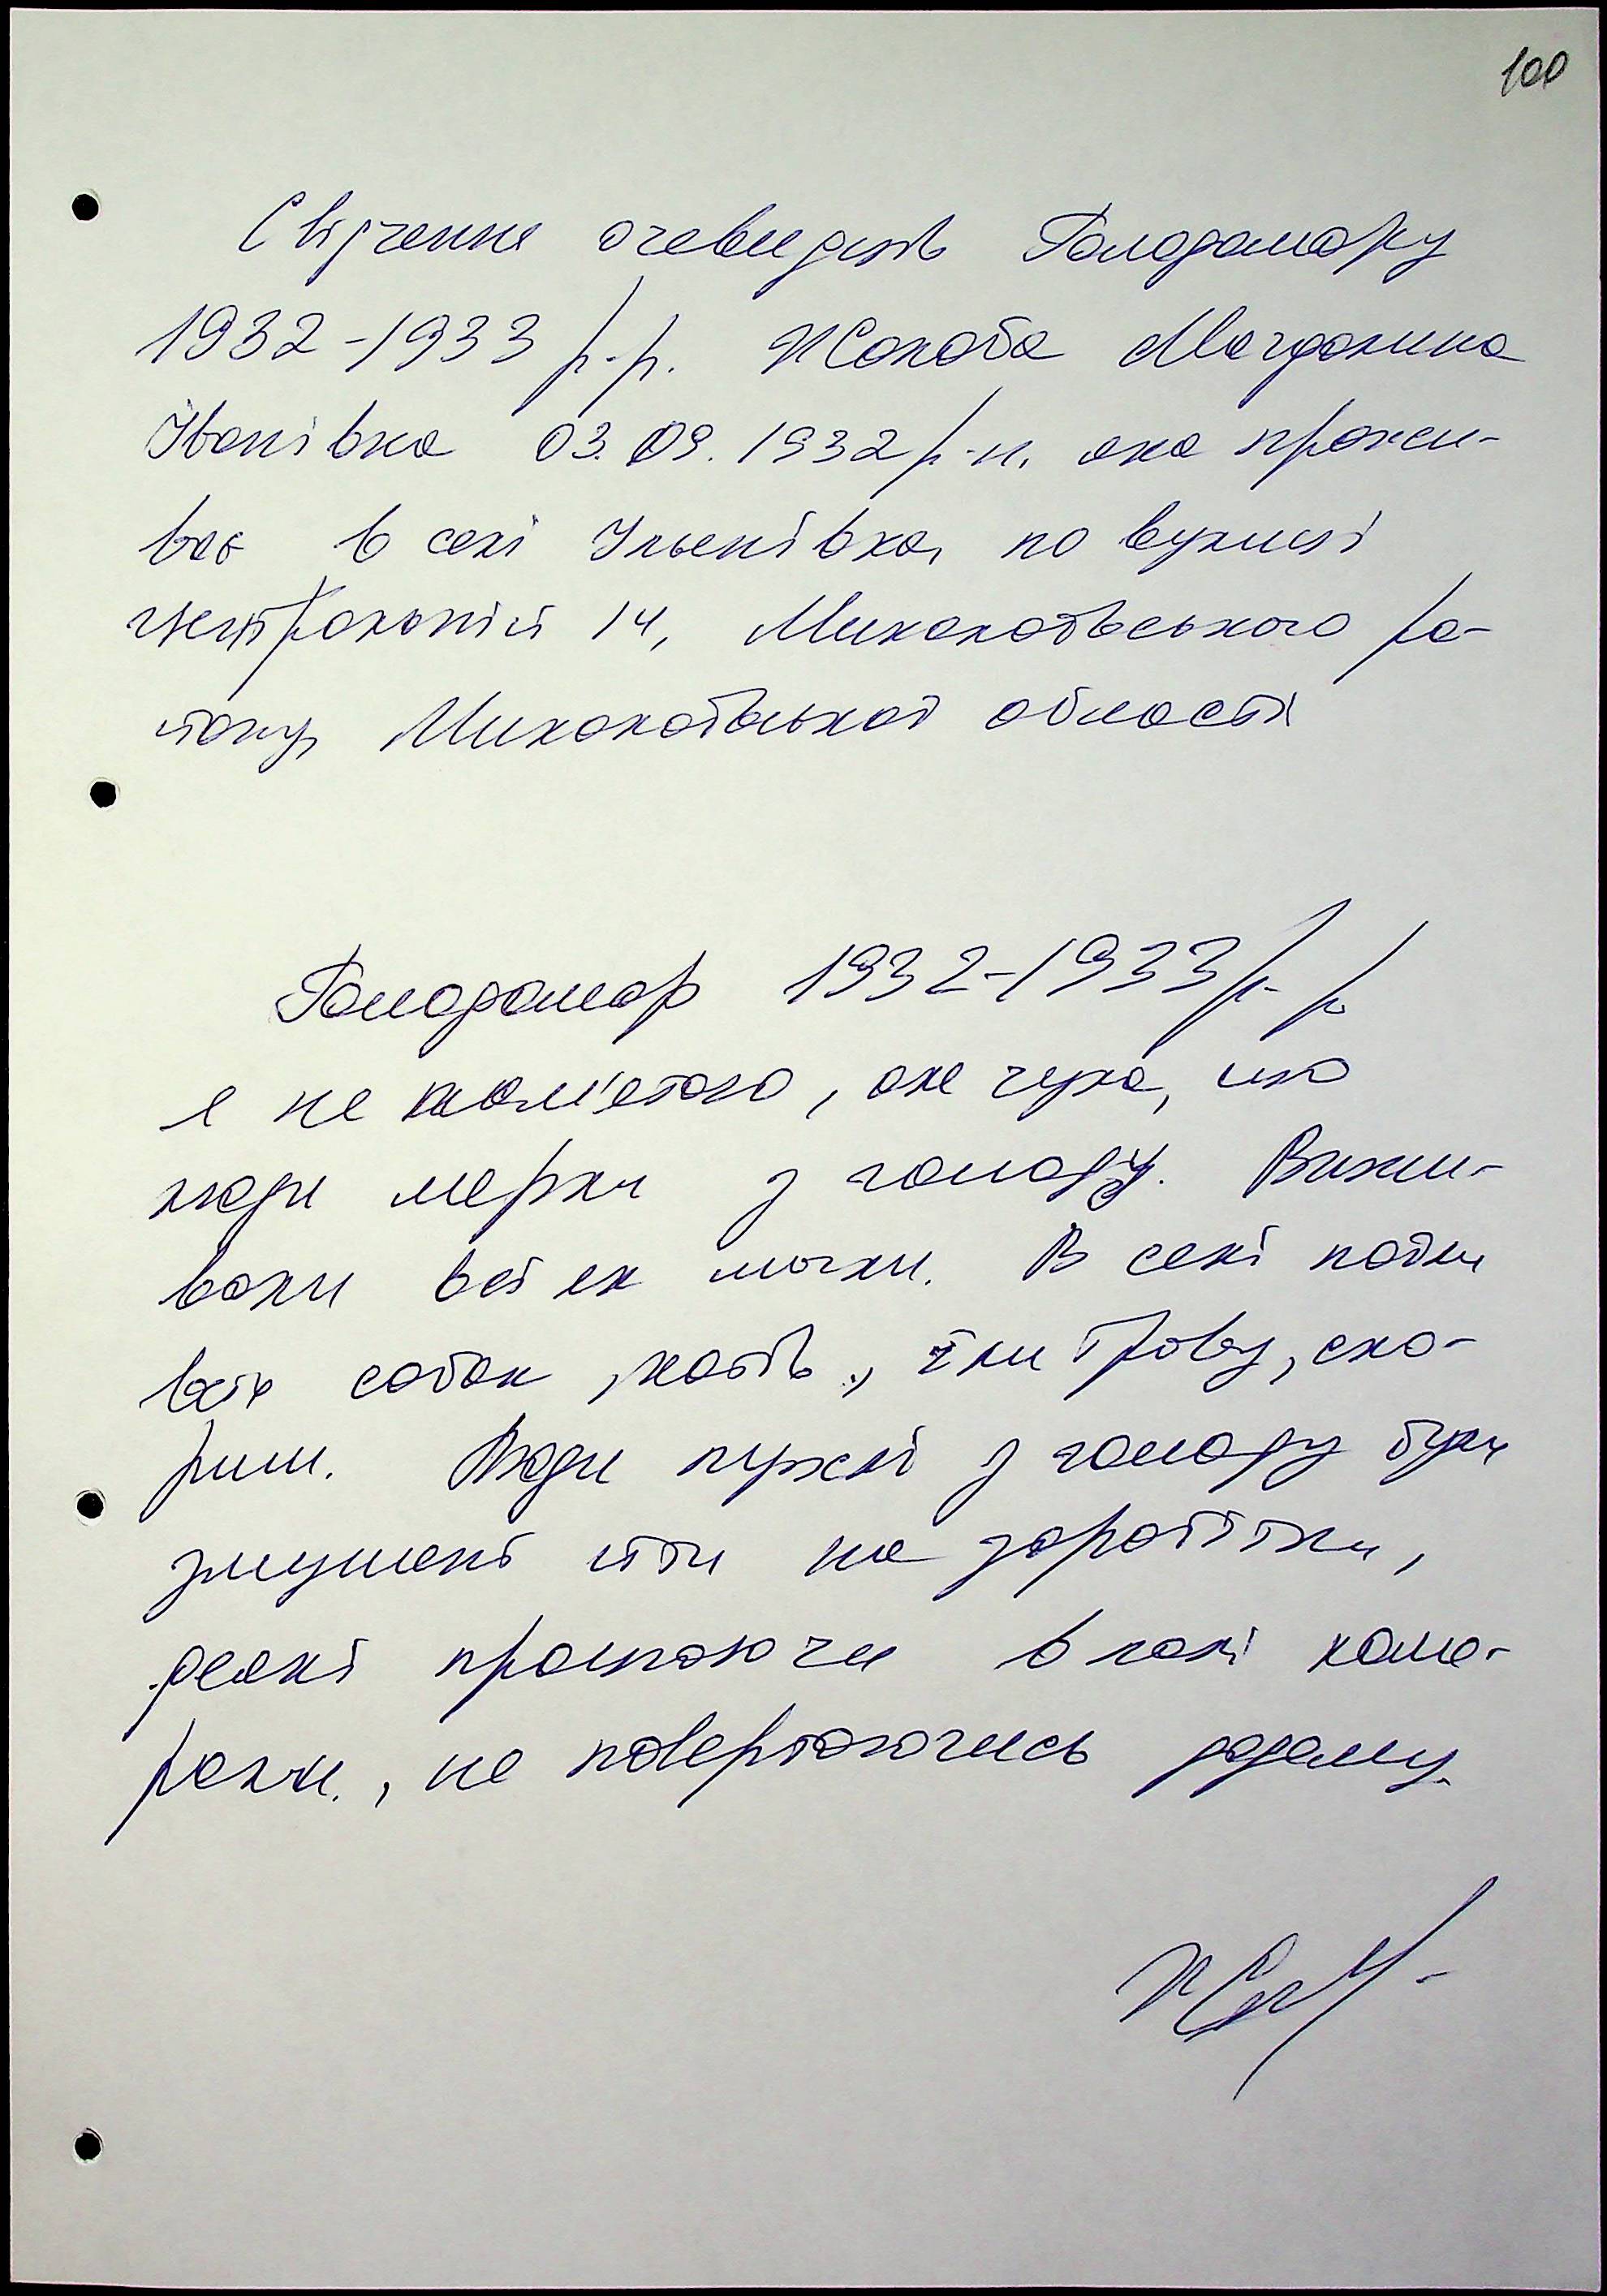 100
Свідчення очевидців Голодомору
1932-1933 р.р. Жолоба Магдалина
Іванівна 03.09.1932 р.н. яка прожи-
ває в селі Ульянівка, по вулиці
центральній 14, Миколаївського ра-
йону, Миколаївської області
Голодомор 1932-1933 р. р.
я не пам'ятаю, але чула, що
люди мерли з голоду. Вижи-
вали всі як могли. В селі поїли
всіх собак, котів, їли траву, схо-
рищ. Люди пухлі з голоду були
змушені йти на заробітки,
деякі працюючи в полі поми-
рали, не повертаючись додому.